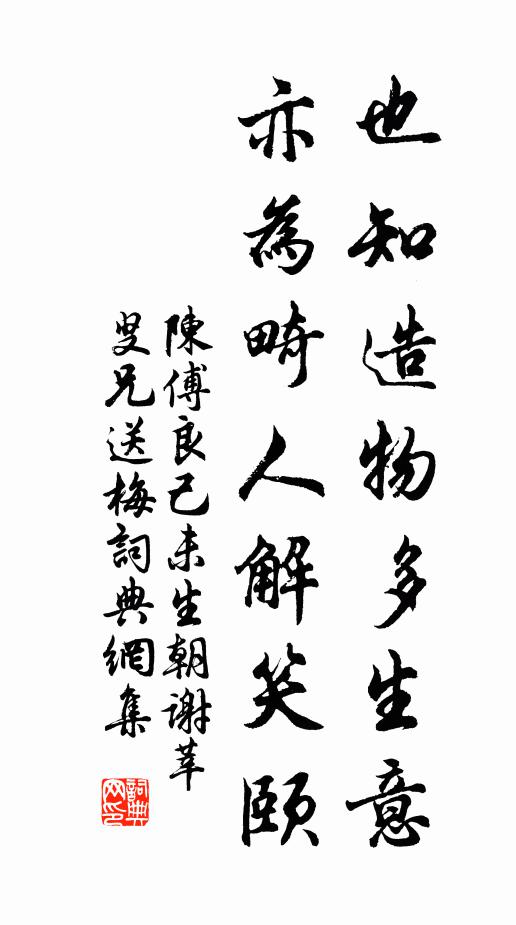 也知造物多生意
亦為畸人解笑頤
陳傅良己未生朝謝莘
叟兄送梅詞典網集
詞典网印